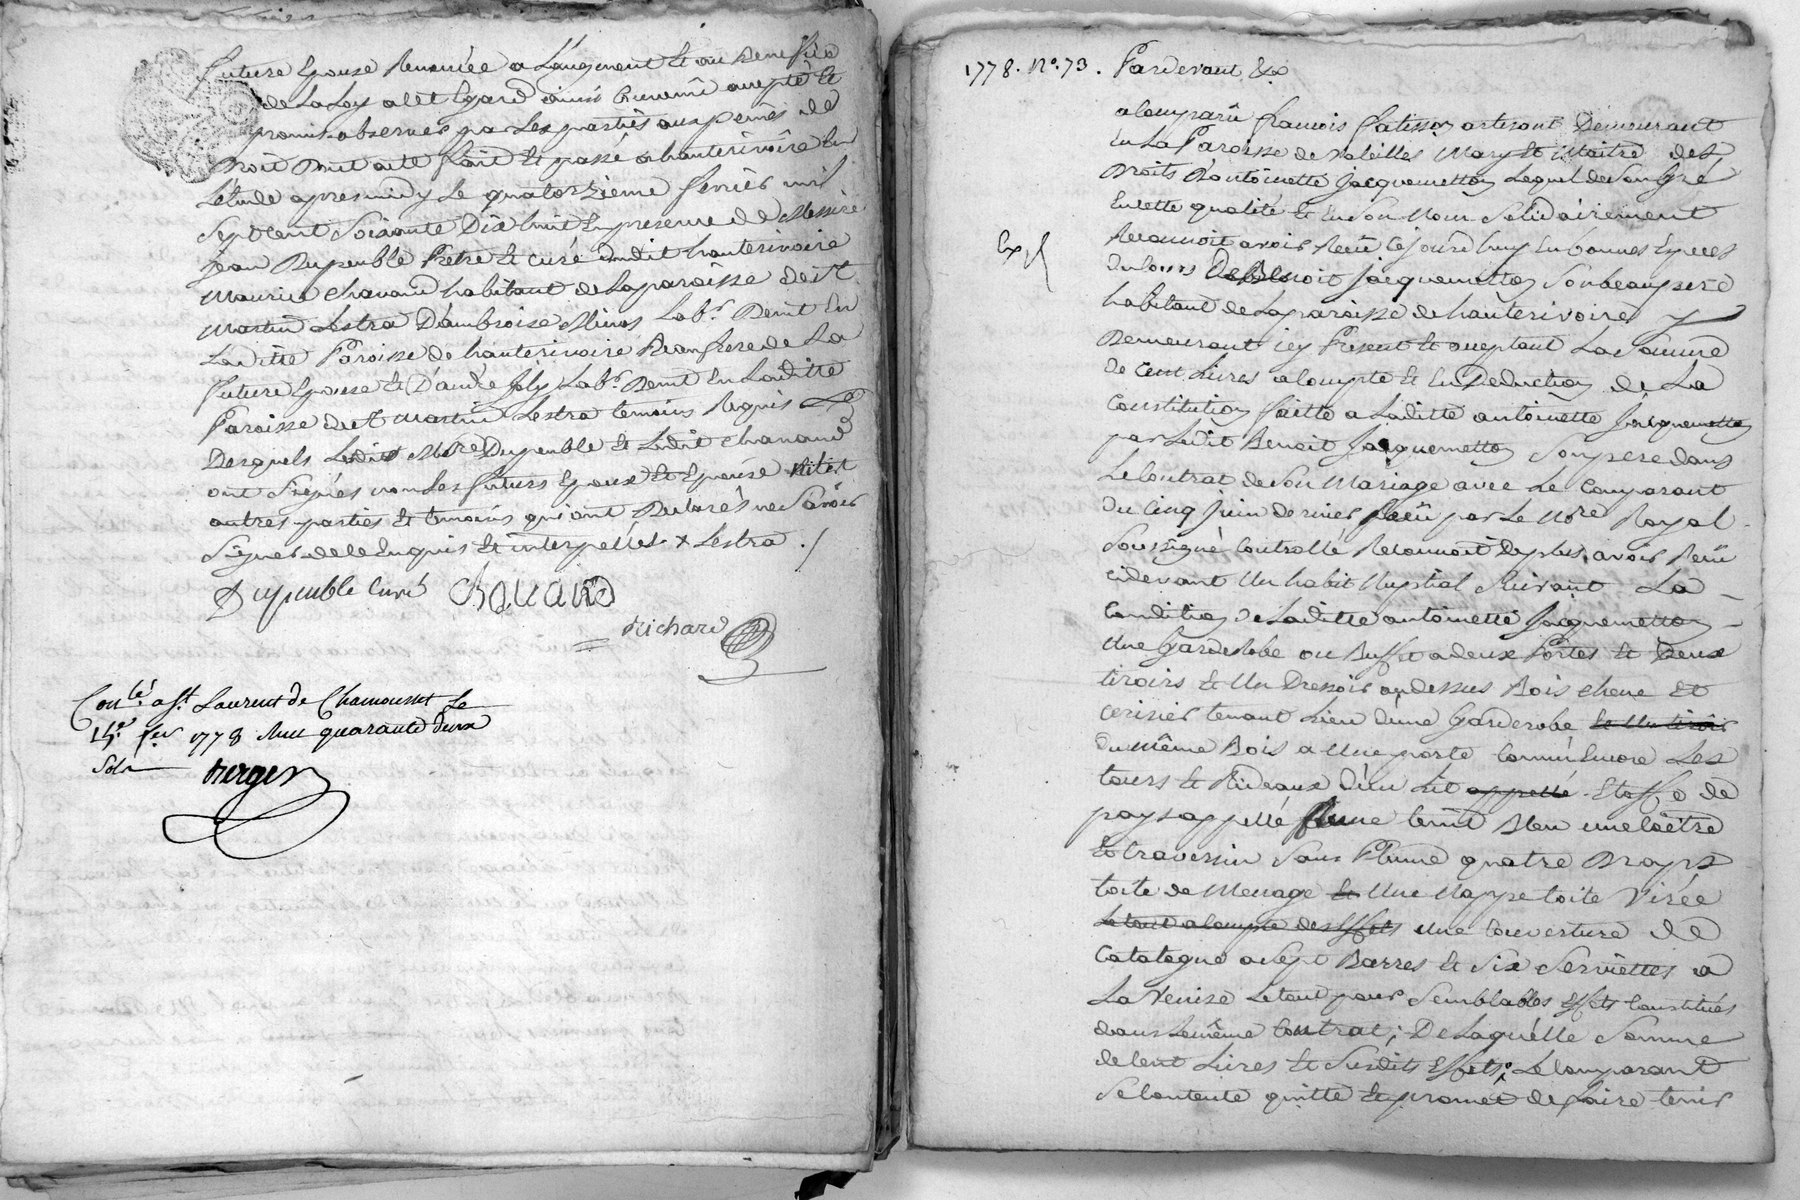 future Epouse Renoncée a L'augment Et au Benefice
de La Loy a cet Egard ainsi Convenû accepté Et
promis observer par Les parties aux peines de
Droit Dont acte fait Et passé a hauterivoire En
L'étude apres midy Le quatorzieme fevrier mil
Sept cent Soixante Dix huit En presence de Messire
jean Dupeuble Prêtre Et curé dudit hauterivoire
Maurice Chavand habitant de La paroisse de St.
Martin Lestra D'ambroise Minos Labr. Demt En
La ditte Paroisse de hauterivoire Beaufrere de La
future Epouse Et D'andré Joly Labr. Demt En Laditte
Paroisse de St Martin Lestra temoins Requis
Desquels Ledit Mre Dupeuble Et Ledit Chavand
ont Signés non Les futurs Epoux Et Epouse
autres parties Et temoins qui ont Declarés ne Savoir
Signer de ce Enquis Et interpellés x Lestra ./
Dupeuble Curé Chavand
Richard
Conlé a St. Laurent de Chamousset Le
fer 1778 Reçu quarante deux
Sols Berger
1778. No. 73. Pardevant &a
a Comparû francois artisant Demeurant
En La Paroisse de Valeilles Mary Et Maitre des
Droits D'antoinette Jacquemetton Lequel de Son Gré
En cette qualité Et En Son Nom Solidairement
Reconnoit avoir Recû Cejourd'huy En bonnes Especes
du Cours De Benoit Jacquemetton Son beaupere
habitant de La paroisse de hauterivoire y
Demeurant icy Present Et acceptant La Somme
de Cent Livres a Compte Et En Deduction de La
Constitution faitte a Laditte antoinette Jacquemetton
par Ledit Benoit Jacquemetton Son pere dans
Le Contrat de Son Mariage avec Le Comparant
du Cinq Juin dernier Recû par Le Nore Royal
Soussigné Controllé Reconnoit De plus avoir Recû
cidevant Un habit Nuptial Suivant La
Condition de Laditte antoinette Jacquemetton
Une Garderobe ou Buffet a deux Portes Et Deux
tiroirs Et Un Dressoir au dessus Bois chene Et
Cerisier tenant Lieu d'une Garderobe Et Un tiroir
du même Bois a Une porte Comme Encore Les
tours Et Rideaux d'un Lit appellé Etoffe de
pays appellé teint Bleu une Coëtre
Et traversin Sans Plume quatre Draps
toile de Menage Et Une Nappe toile Virée
Le tout a Compte des Effets une Couverture de
Catalogne a Sept Barres Et Six Serviettes a
La Venise Le tout pour Semblables Effets Constitués
dans Le même Contrat; De Laquelle Somme
de Cent Livres Et Susdits Effets, Le Comparant
Se Contente quitte Et promet de faire tenir